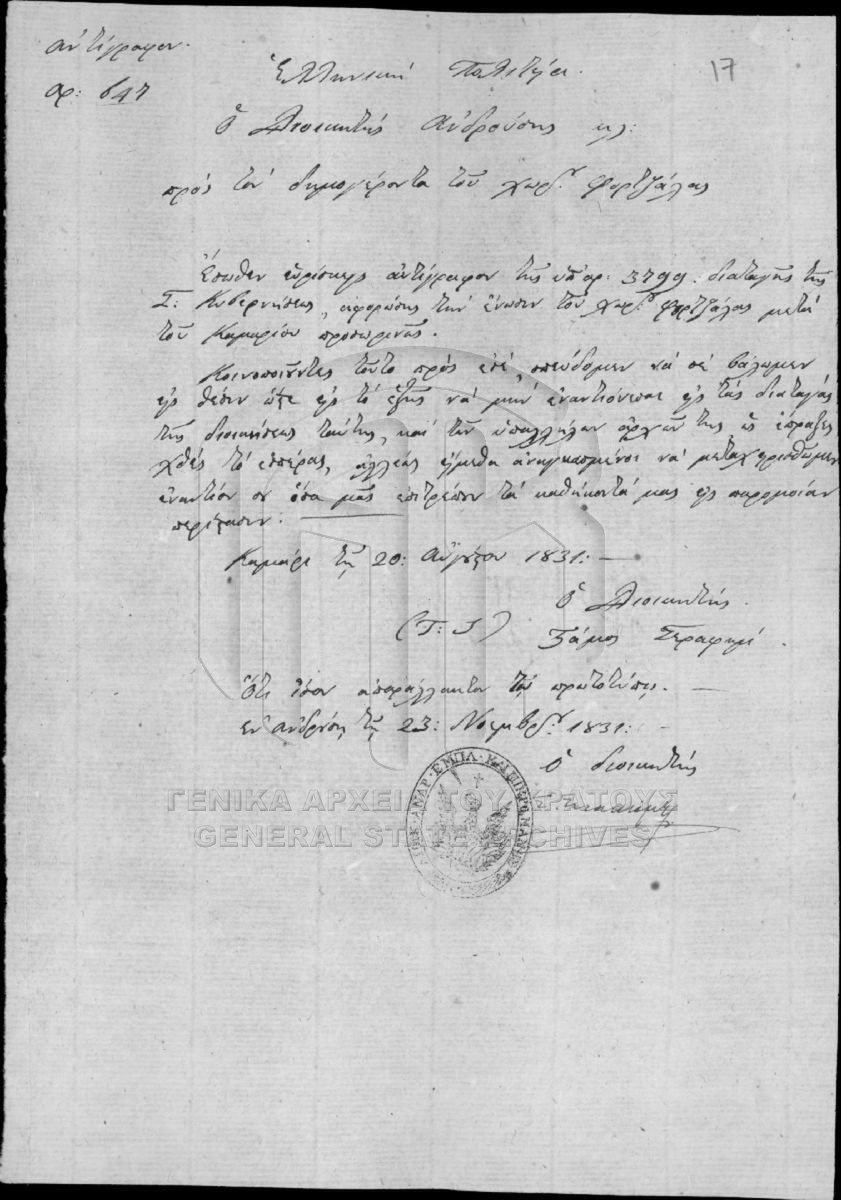 ἀντίγραφον.
αρ: 647
17
Ἑλληνική Πολιτεία.
Ὁ Διοικητής Ανδρούσης κλ:
πρός τόν δημογέροντα τοῦ χωρ: Φορτζάλας
Ἔσωθεν εὑρίσκεις ἀντίγραφον τῆς ὑπ' αρ. 3799. διαταγῆς τῆς
Σ: Κυβερνήσεως, αφορώσης τήν ἕνωσιν τοῦ χωρ: Φορτζάλας μετά
τοῦ Καμαρίου προσωρινῶς.
Κοινοποιοῦντες τοῦτο πρός εσέ, σπεύδομεν νά σέ βάλωμεν
εἰς θέσιν ὥςε εἰς τό ἑξῆς νά μήν ἐναντιόνεσαι εἰς τάς διαταγάς
τῆς διοικήσεως ταύτης, καί τῶν ὑπαλλήλων ἀρχῶν της ὡς ἔπραξες
χθές τό εσπέρας, ἀλλέως εἴμεθα ἀναγκασμένοι νά μεταχειρισθῶμεν
ἐναντίον σου ὅσα μᾶς ἐπιτρέπουν τά καθήκοντά μας εἰς παρομοίαν
περίςασιν:
Καμάρι τῇ 20: Αὐγούςου 1831:
Ὁ Διοικητής
(Τ: Σ) Τζάμος Σεραφημ
Ὅτι ἴσον ἀπαράλλακτον τῷ πρωτοτύπῳ.
εν Ἀνδρούσῃ τῇ 23: Νοεμβρ: 1831:
Ὁ διοικητής
ΓΕΝΙΚΑ ΑΡΧΕΙΑ ΤΟΥ ΚΡΑΤΟΥΣ
GENERAL STATE ARCHIVES